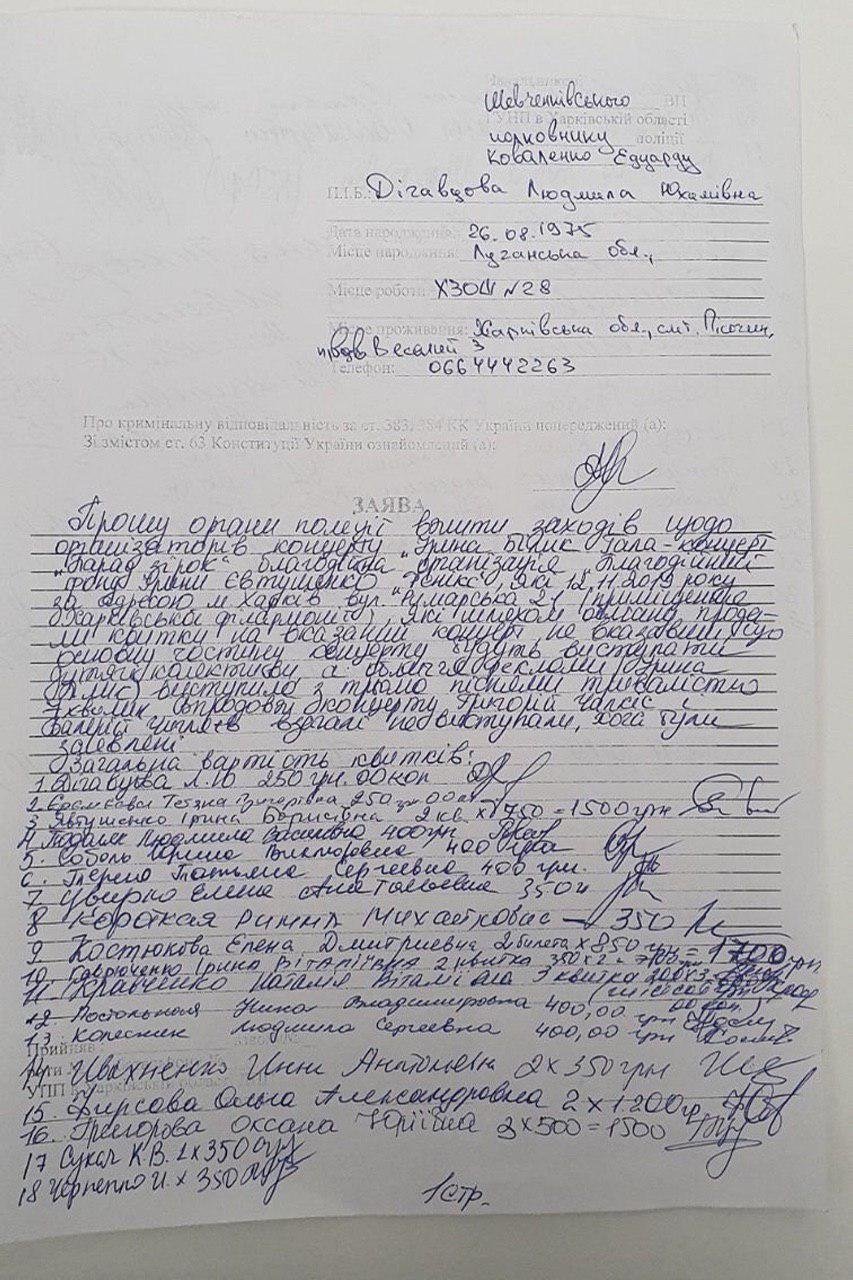 Шевченківського ВП
ГУНП в Харківській області
полковнику поліції
Коваленко Едуарду
П.І.Б.: Дігавцова Людмила Юхимівна
Дата народження: 26.08.1975
Місце народження: Луганська обл.,
Місце роботи: ХЗОШ №28
Місце проживання: Харківська обл., смт. Пісочин,
Веселий 3
Телефон: 0664442263
Про кримінальну відповідальність за ст. 383, 384 КК України попереджений (а):
Зі змістом ст. 63 Конституції України ознайомлений (а):
ЗАЯВА
Прошу органи поліції вжити заходів щодо
організаторів концерту „Ірина Білик Гала-концерт
„Парад зірок" благодійна організація „Благодійний
фонд Ірини Євтушенко „Фенікс", які 12.11.2019 року
за адресою м. Харків вул. Римарська 21 (приміщення
Харківської філармонії), які шляхом обману прода-
ли квитки на вказаний концерт не вказавши що
основну частину концерту будуть виступати
колективи а
виступила з трьома піснями тривалістю
хвилин концерту Григорій Чапкіс і
Валерій взагалі не виступали, хоча були
заявлені.
Загальна вартість квитків:
1. Дігавцова Л.Ю 250 грн. 00 коп
2. Тетяна Григорівна 250 грн 00 коп
3. Євтушенко Ірина Борисівна 2 кв. х 750 = 1500 грн
4. Людмила Василівна 400 грн
5. Соболь Ирина Викторовна 400 грн
6. Татьяна Сергеевна 400 грн.
7. Елена Анатольевна 350
8 Короткая Римма Михайловна — 350
9 Костюкова Елена Дмитриевна 2 билета х 850 грн = 1700 грн
10 Ірина Віталіївна 2 квитка 350х2 = 700
11 Кравченко Наталія Віталіївна 3 квитка 200х3
12. Постольная Нина Владимировна 400,00 грн
13. Колесник Людмила Сергеевна 400,00 грн
Прийняв
14 Ивахненко Инна Анатольевна 2х350 грн
15. Фирсова Ольга Александровна 2 х 1200 гр
16. Григорова Оксана Юріївна 3х500 = 1500
17 К.В. х 350
18 И. х 350
1 стр.